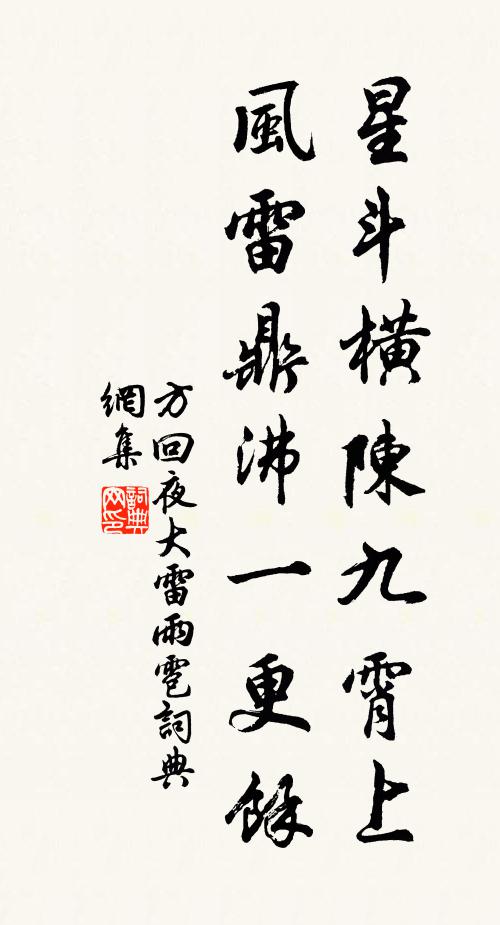 星斗橫陳九霄上
風雷鼎沸一更餘
方回夜大雷雨雹詞典
網集
詞典网印